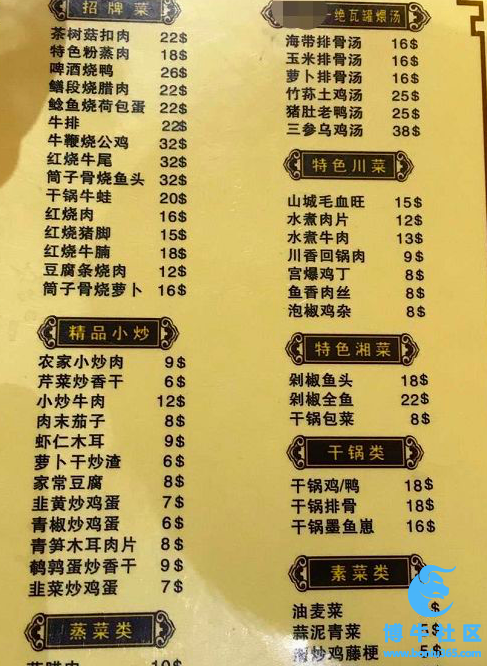 招牌菜
茶树菇扣肉 22$
特色粉蒸肉 18$
啤酒烧鸭 26$
鳝段烧腊肉 22$
鲶鱼烧荷包蛋 22$
牛排 22$
牛鞭烧公鸡 32$
红烧牛尾 32$
筒子骨烧鱼头 32$
干锅牛蛙 20$
红烧肉 16$
红烧猪脚 15$
红烧牛腩 18$
豆腐条烧肉 12$
筒子骨烧萝卜 16$
精品小炒
农家小炒肉 9$
芹菜炒香干 6$
小炒牛肉 12$
肉末茄子 8$
虾仁木耳 9$
萝卜干炒渣 6$
家常豆腐 8$
韭黄炒鸡蛋 7$
青椒炒鸡蛋 6$
青笋木耳肉片 8$
鹌鹑蛋炒香干 9$
韭菜炒鸡蛋 7$
蒸菜类
10$
一绝瓦罐煨汤
海带排骨汤 16$
玉米排骨汤 16$
萝卜排骨汤 16$
竹荪土鸡汤 25$
猪肚老鸭汤 25$
三参乌鸡汤 38$
特色川菜
山城毛血旺 15$
水煮肉片 12$
水煮牛肉 13$
川香回锅肉 9$
宫爆鸡丁 8$
鱼香肉丝 8$
泡椒鸡杂 8$
特色湘菜
剁椒鱼头 18$
剁椒全鱼 22$
干锅包菜 8$
干锅类
干锅鸡/鸭 18$
干锅排骨 18$
干锅墨鱼崽 16$
素菜类
油麦菜 $
蒜泥青菜 5$
炒鸡藤梗 5$
博牛社区